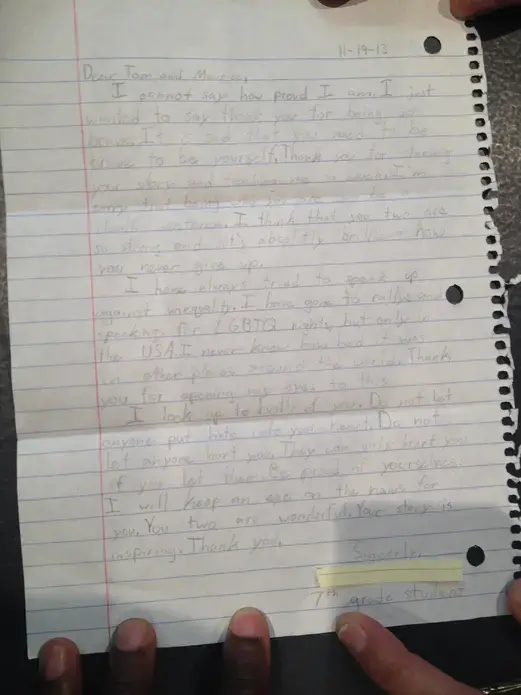 11-19-13
Dear Tom and
I cannot say how proud I am. I just
wanted to say thank you for being so
brave. It is sad that you need to be
to be yourself. Thank you for sharing
your story and
sorry that being
I think that you two are
so and it's absolutly how
you never give up.
I have always tried to speak up
against inequality. I have gone to and
speaking for LGBTQ rights, but only in
the USA. I never knew how bad it was
in other places around the world. Thank
you for opening my eyes to this.
I look up to both of you. Do not let
anyone put hate into your heart. Do not
let anyone hurt you. They can only hurt you
if you let them. Be proud of yourselves.
I will keep an eye on the news for
you. You two are wonderful. Your story is
inspiring. Thank you.
Sincerely,
7th grade student